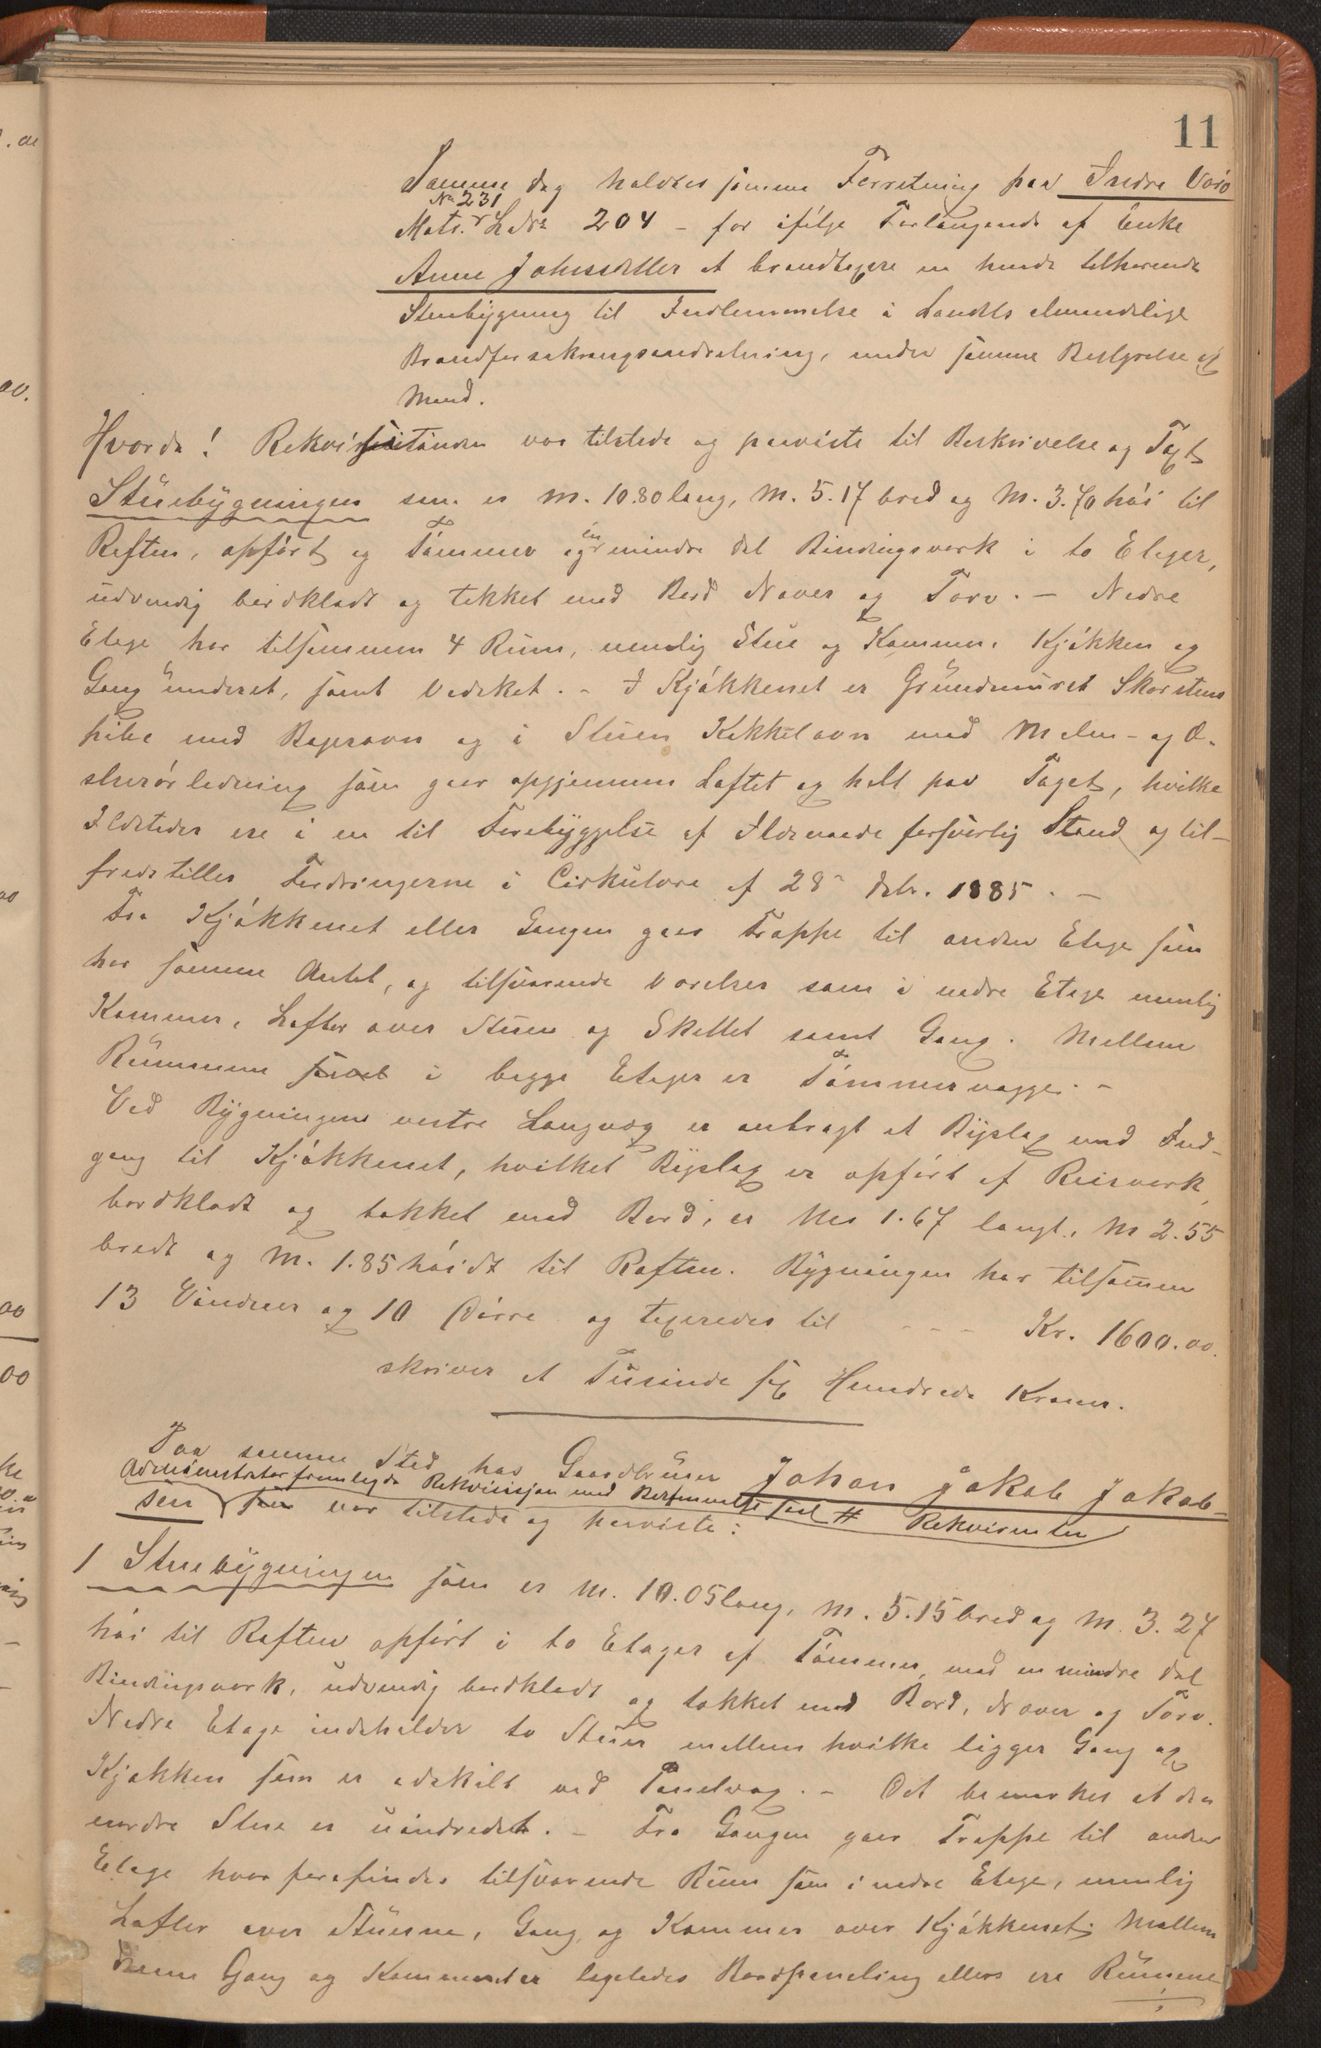 11
Samme Dag holdtes samme Forretning paa Indre VaIø
No 231
Matr. Lbnr 204 - for ifølge Forlangende af Enke
Anne Johnsdatter at brandtaxere en hende tilhørende
Stuebygning til Indlemmelse i Landets almindelige
Brandforsikringsindretning, under samme Bestyrelse og
Mænd.
Hvorda! Rekvirentinden var tilstede og paaviste til Beskrivelse og Taxt
Stuebygningen som er M. 10.80 lang, M. 5.17 bred og M. 3.70 høi til
Raften, opført og Tømmer og en mindre del Bindingsverk i to Etager,
udvendig bordklædt og tækket med Bord Næver og Torv. - Nedre
Etage har tilsammen 4 Rum, nemlig Stue og Kammer, Kjøkken og
Gang uinderet, samt Vedsket. - I Kjøkkenet er Grundmuret Skorstens
pibe med Bagerovn og i Stuen Kakkelovn med Mellem- og O-
sluerørledning som gaar opgjennem Loftet og helt paa Taget, hvilke
Ildsteder ere i en til Forebyggelse af Ildsvaade forsvarlig Stand og til-
fredstiller Fordringerne i Cirkulære af 28de Debr. 1885. -
Fra Kjøkkenet eller Gangen gaar Trappe til anden Etage som
har samme Antal, og tilsvarende Værelser som i nedre Etage nemlig
Kammer, Lofter over Stuen og Skellet samt Gang. Mellem
Rummene i begge Etager er Tømmervægge. -
Ved Bygningens vestre Langvæg er anbragt et Bislag med Ind-
gang til Kjøkkenet, hvilket Bislag er opført af Reisverk,
bordklædt og tækket med Bord, er Mes 1.67 langt, M 2.55
bredt og M. 1.85 høidt til Raften. Bygningen har tilsammen
13 Vinduer og 10 Dørre og taxeredes til - - - Kr. 1600.00.
skriver et Tusinde sex Hundrede Kroner.
Paa samme Sted har Gaardbruger Johan Jakob Jakob-
Administrator fremlagde Rekvisisjon med Rekvirenten
sen som var tilstede og paaviste:
1 Stuebygningen som er M. 10.05 lang, M. 5.15 bred og M. 3.27
høi til Raften opført i to Etager af Tømmer, med en mindre del
Bindingsverk, udvendig bordklædt og tækket med Bord, Næver og Torv.
Nedre Etage indeholder to Stuer mellem hvilke ligger Gang og
Kjøkken som er adskilt ved Panelvæg. - Det bemærkes at den
nordre Stue er uindredet. - Fra Gangen gaar Trappe til anden
Etage hvor forefindes tilsvarende Rum som i nedre Etage, nemlig
Lofter over Stuerne, Gang og Kammer over Kjøkkenet; Mellem
denne Gang og Kammeret er ligeledes Bordpaneling ellers ere Rummene